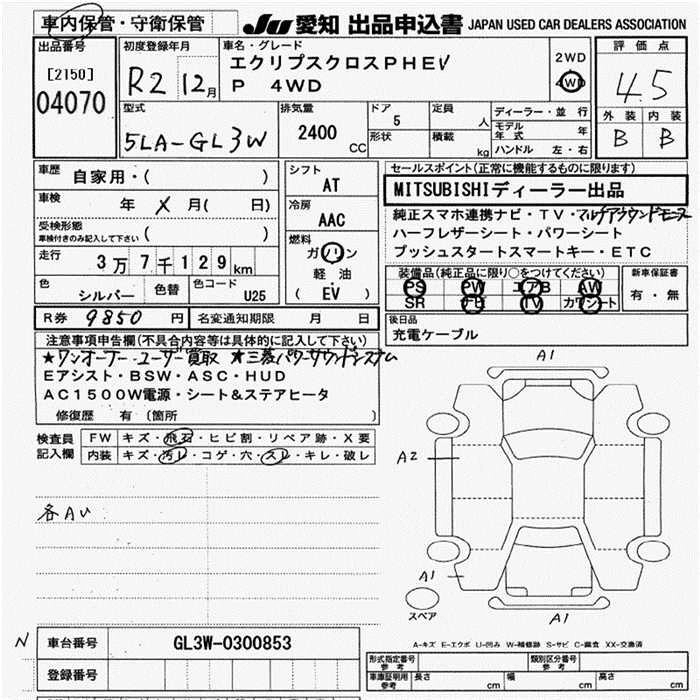 車内保管・守衛保管
JU 愛知 出品申込書 JAPAN USED CAR DEALERS ASSOCIATION
出品番号
[2150]
04070
初度登録年月
R2 12月
車名・グレード
エクリプスクロスPHEV
P 4WD
2WD
4WD
評価点
4.5
外装 内装
B B
型式
5LA-GL3W
排気量
2400
CC
ドア
5
形状
定員
人
積載
kg
ディーラー・並行
モデル年式 年
ハンドル 左・右
車歴
自家用・( )
車検
年 X 月( 日)
受検形態
車検付きのみ記入して下さい ( )
走行
3万7千129km
色
シルバー
色替
色コード
U25
シフト
AT
冷房
AAC
燃料
ガソリン
軽油
( EV )
セールスポイント(正常に機能するものに限ります)
MITSUBISHIディーラー出品
純正スマホ連携ナビ・TV・マルチアラウンドモニター
ハーフレザーシート・パワーシート
プッシュスタートスマートキー・ETC
装備品(純正品に限り○をつけてください)
PS PW エアB AW
SR ナビ TV カワシート
新車保証書
有・無
R券 9850円
名変通知期限 月 日
後日品
充電ケーブル
注意事項申告欄(不具合内容等は具体的に記入して下さい)
★ワンオーナー・ユーザー買取 ★三菱パワーサウンドシステム
Eアシスト・BSW・ASC・HUD
AC1500W電源・シート&ステアヒータ
修復歴 有 (箇所 )
検査員記入欄
FW キズ・飛石・ヒビ割・リペア跡・X要
内装 キズ・汚レ・コゲ・穴・スレ・キレ・破レ
各AU
A1
A2
A1
A1
スペア
N
車台番号 GL3W-0300853
登録番号
A-キズ E-エクボ U-凹み W-補修跡 S-サビ C-腐食 XX-交換済
形式指定番号
参考
類別区分番号
参考
車庫証明用
参考
長さ cm 幅 cm 高さ cm